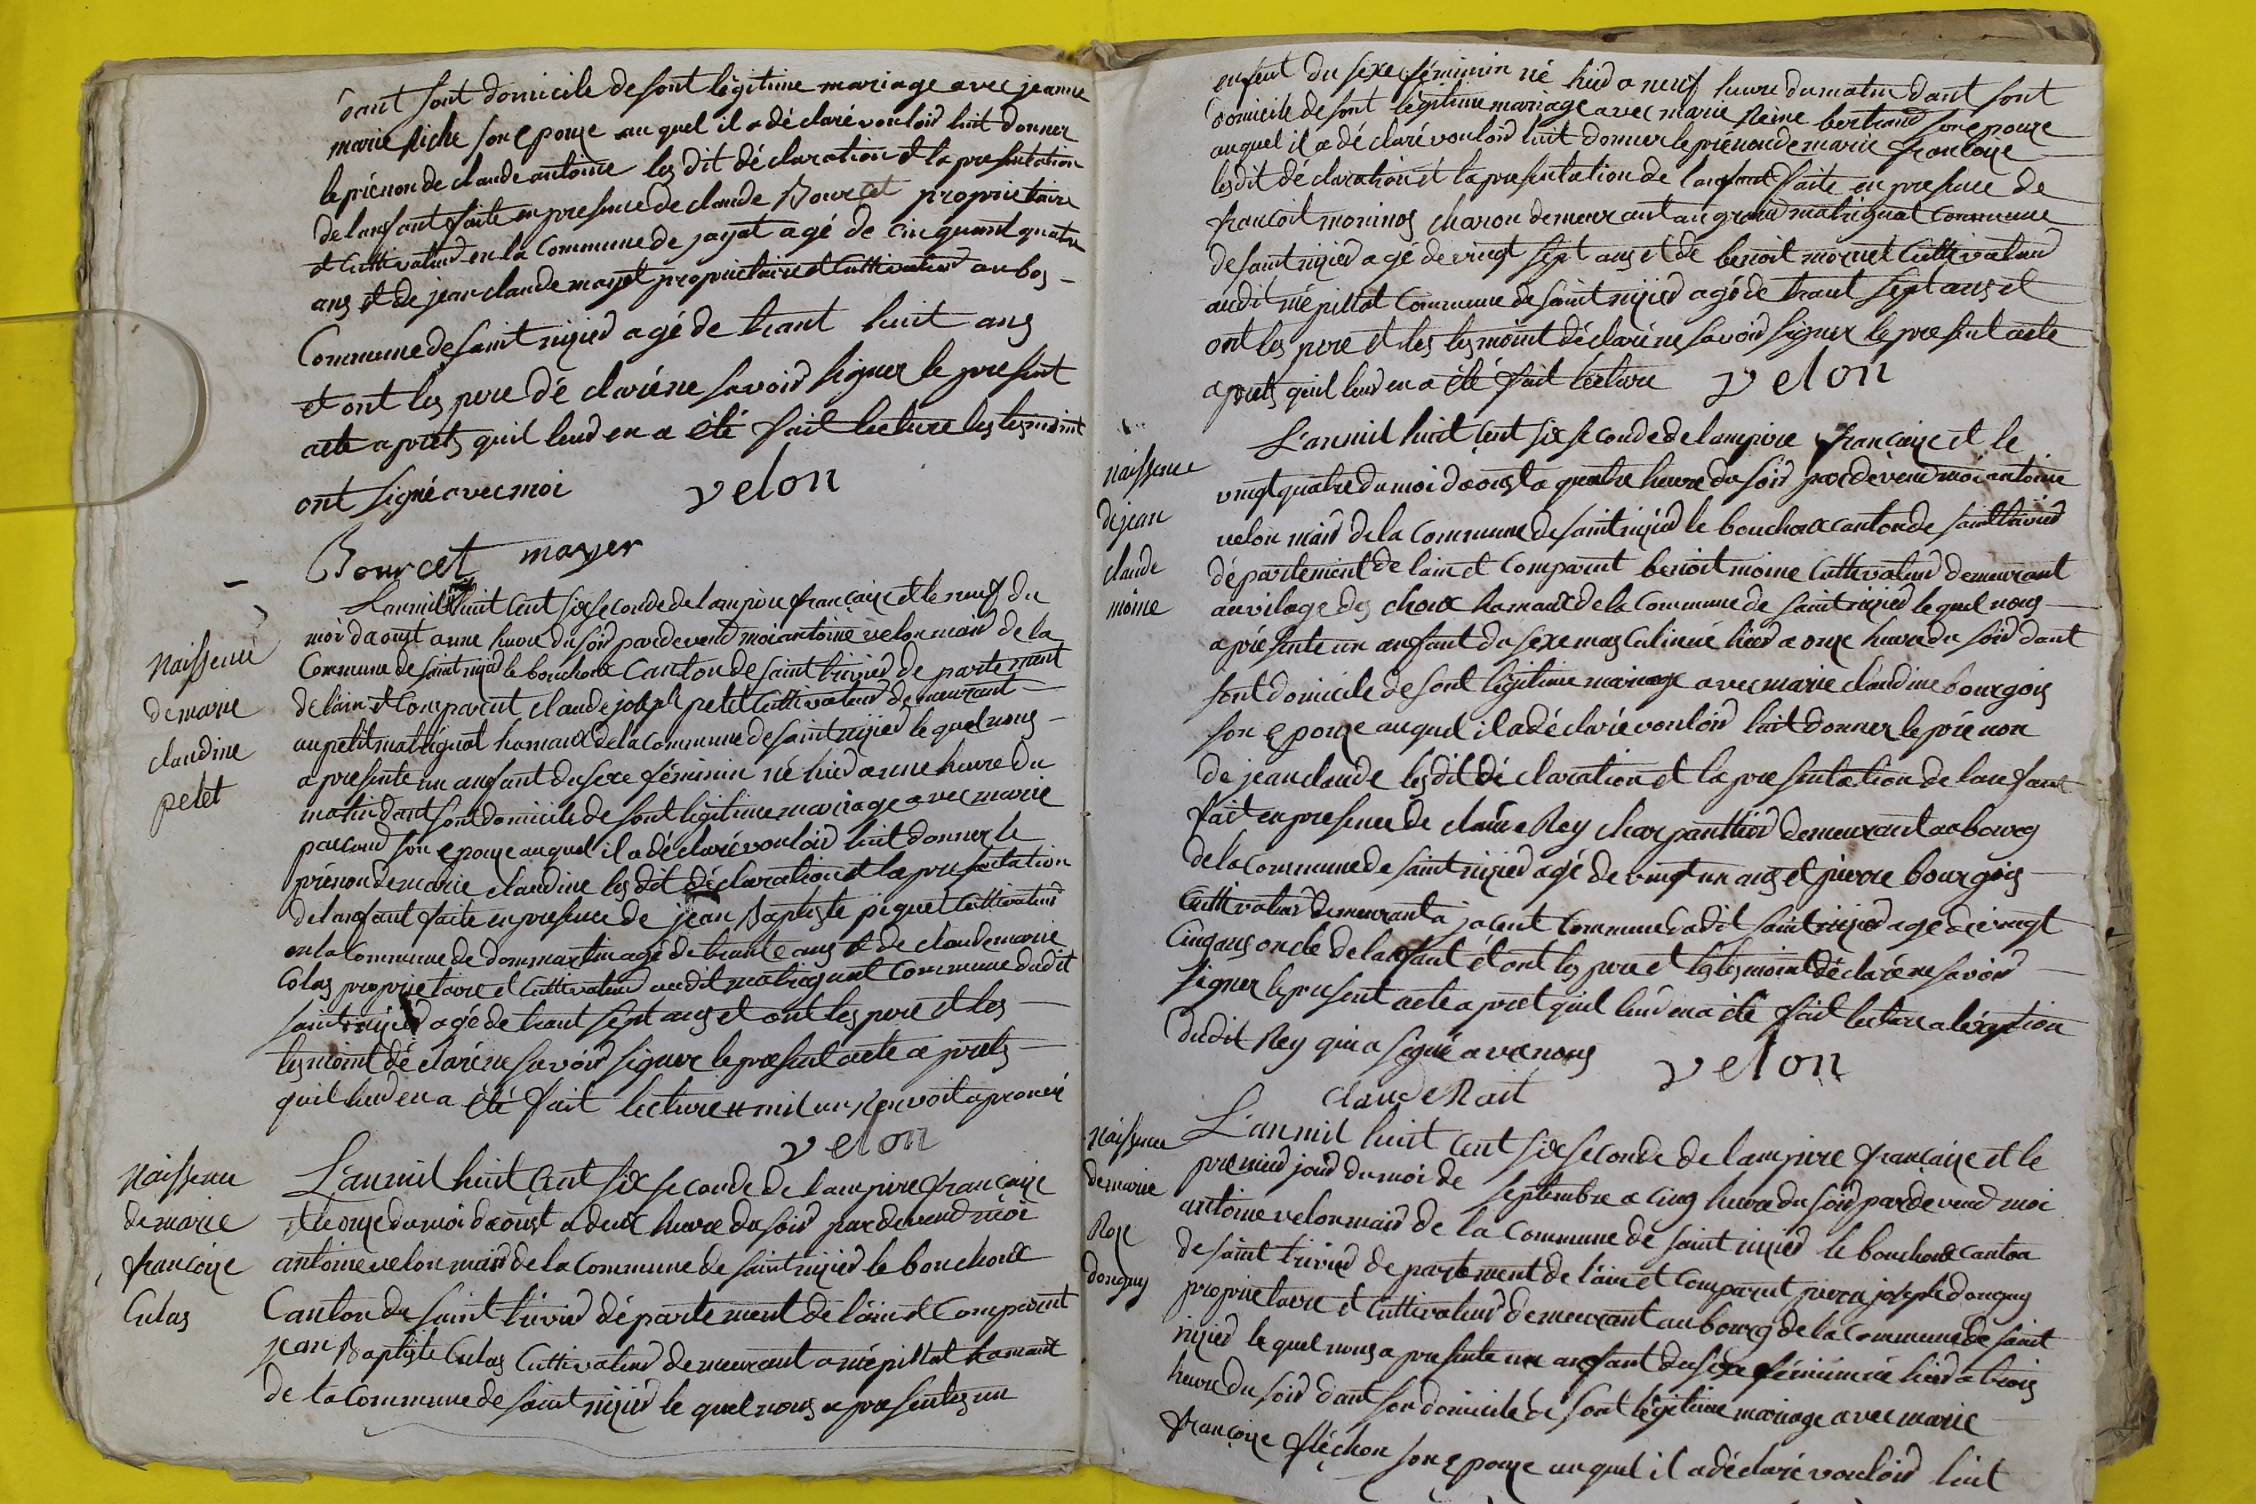 dant sont domicile de sont légitime mariage avec jeanne
marie piche son epouze auquel il a déclaré vouloir luit donner
le prénon de claude antoine les dit déclaration et la presentation
de lanfant faite en presence de claude Bourcet proprietaire
et Cultivateur en la Commune de jayat agé de cinquant quatre
ans et de jean claude mayet proprietaire et Cultivateur au bos
Commune de saint nizier agé de trant huit ans
et ont les pere déclaré ne savoir signer le present
acte aprets quil leur en a été fait lecture les tesmoint
ont signé avec moi velon
Bourcet mayer
Naissence
de marie
claudine
petet
Lan mil huit cent six seconde de lampire françaize et le neuf du
moi daoust a une heure du soir pardevend moi antoine velon mair de la
Commune de saint nizier le bouchoux canton de saint trivier departement
de lain et Comparent claude joseph petet Cultivateur demeurant
au petit matrignat hamaux de la commune de saint nizier lequel nous
a presente un anfant du sexe féminin né hier a une heure du
matin dant sont domicile de sont légitime mariage avec marie
son epouze auquel il a déclaré vouloir luit donner le
prénon de marie claudine les dit déclaration et la presentation
de lanfant faite en presence de jean Baptiste piquet Cultivateur
en la Commune de dommartin agé de trante ans et de claude marie
Colas proprietaire et Cultivateur audit matrignat Commune dudit
saint nizier agé de trant sept ans et ont les pere et les
tesmoint déclaré ne savoir signer le present acte a prets
quil leur en a été fait lecture # mil un renvoit aprouvé
velon
Naissence
de marie
françoize
Culas
L'an mil huit Cent six seconde de lampire françaize
et le onze du moi daoust a deux heure du soir pardevend moi
antoine velon mair de la commune de saint nizier le bouchoux
Canton de saint trivier département de lain et Comparent
jean Baptiste Culas Cultivateur demeurant a mépillat hamaux
de la Commune de saint nizier le quel nous a presentes un
enfent du sexe féminin né hier a neuf heure du matin dant sont
domicile de sont légitime mariage avec marie Reine bertrand son epouze
auquel il a déclaré vouloir luit donner le prénon de marie françoize
les dit déclaration et la presentation de lanfant faite en presence de
francoit moninos charon demeurant au grand matrignat Commune
de saint nizier agé de vingt sept ans et de benoit mornet Cultivateur
audit mépillat Commune de saint nizier agé de trant sept ans et
ont les pere et les tesmoint déclaré ne savoir signer le present acte
aprets quil leur en a été fait lecture velon
Naissence
de jean
claude
moine
L'an mil huit cent six seconde de lampire françaize et le
vingt quatre du moi daoust a quatre heure du soir pardevend moi antoine
velon mair de la Commune de saint nizier le bouchoux canton de saint trivier
département de lain et Comparent benoit moine Cultivateur demeurant
au vilage des choux hamaux de la Commune de saint nizier lequel nous
a présente un anfant du sexe masculin né hier a onze heure du soir dant
sont domicile de sont légitime mariage avec marie claudine bourgois
son epouze auquel il a déclaré vouloir luit donner le prénon
de jean claude les dit déclaration et la presentation de lanfant
fait en presence de claude Rey charpanttier demeurant au bourg
de la Commune de saint nizier agé de vingt un ans et pierre bourgois
Cultivateur demeurant a jacent Commune dudit saint nizier agé de vingt
Cinq ans oncle de lanfant et ont les pere et les tesmoint déclaré ne savoir
signer le present acte a pret quil leur en a été fait lecture a léxeption
dudit Rey qui a signé avec nous velon
claude Rait
Naissence
de marie
Roze
donguy
L'an mil huit cent six seconde de lampire françaize et le
premier jour du moi de septembre a cinq heure du soir pardevend moi
antoine velon mair de la Commune de saint nizier le bouchoux canton
de saint trivier departement de lain et Comparent pierre joseph donguy
proprietaire et Cultivateur demeurant au bourg de la Commune de saint
nizier le quel nous a presente un anfant du sexe féminin né hier a trois
heure du soir dant son domicile de sont légitime mariage avec marie
françoize fléchon son epouze auquel il a déclaré vouloir luit